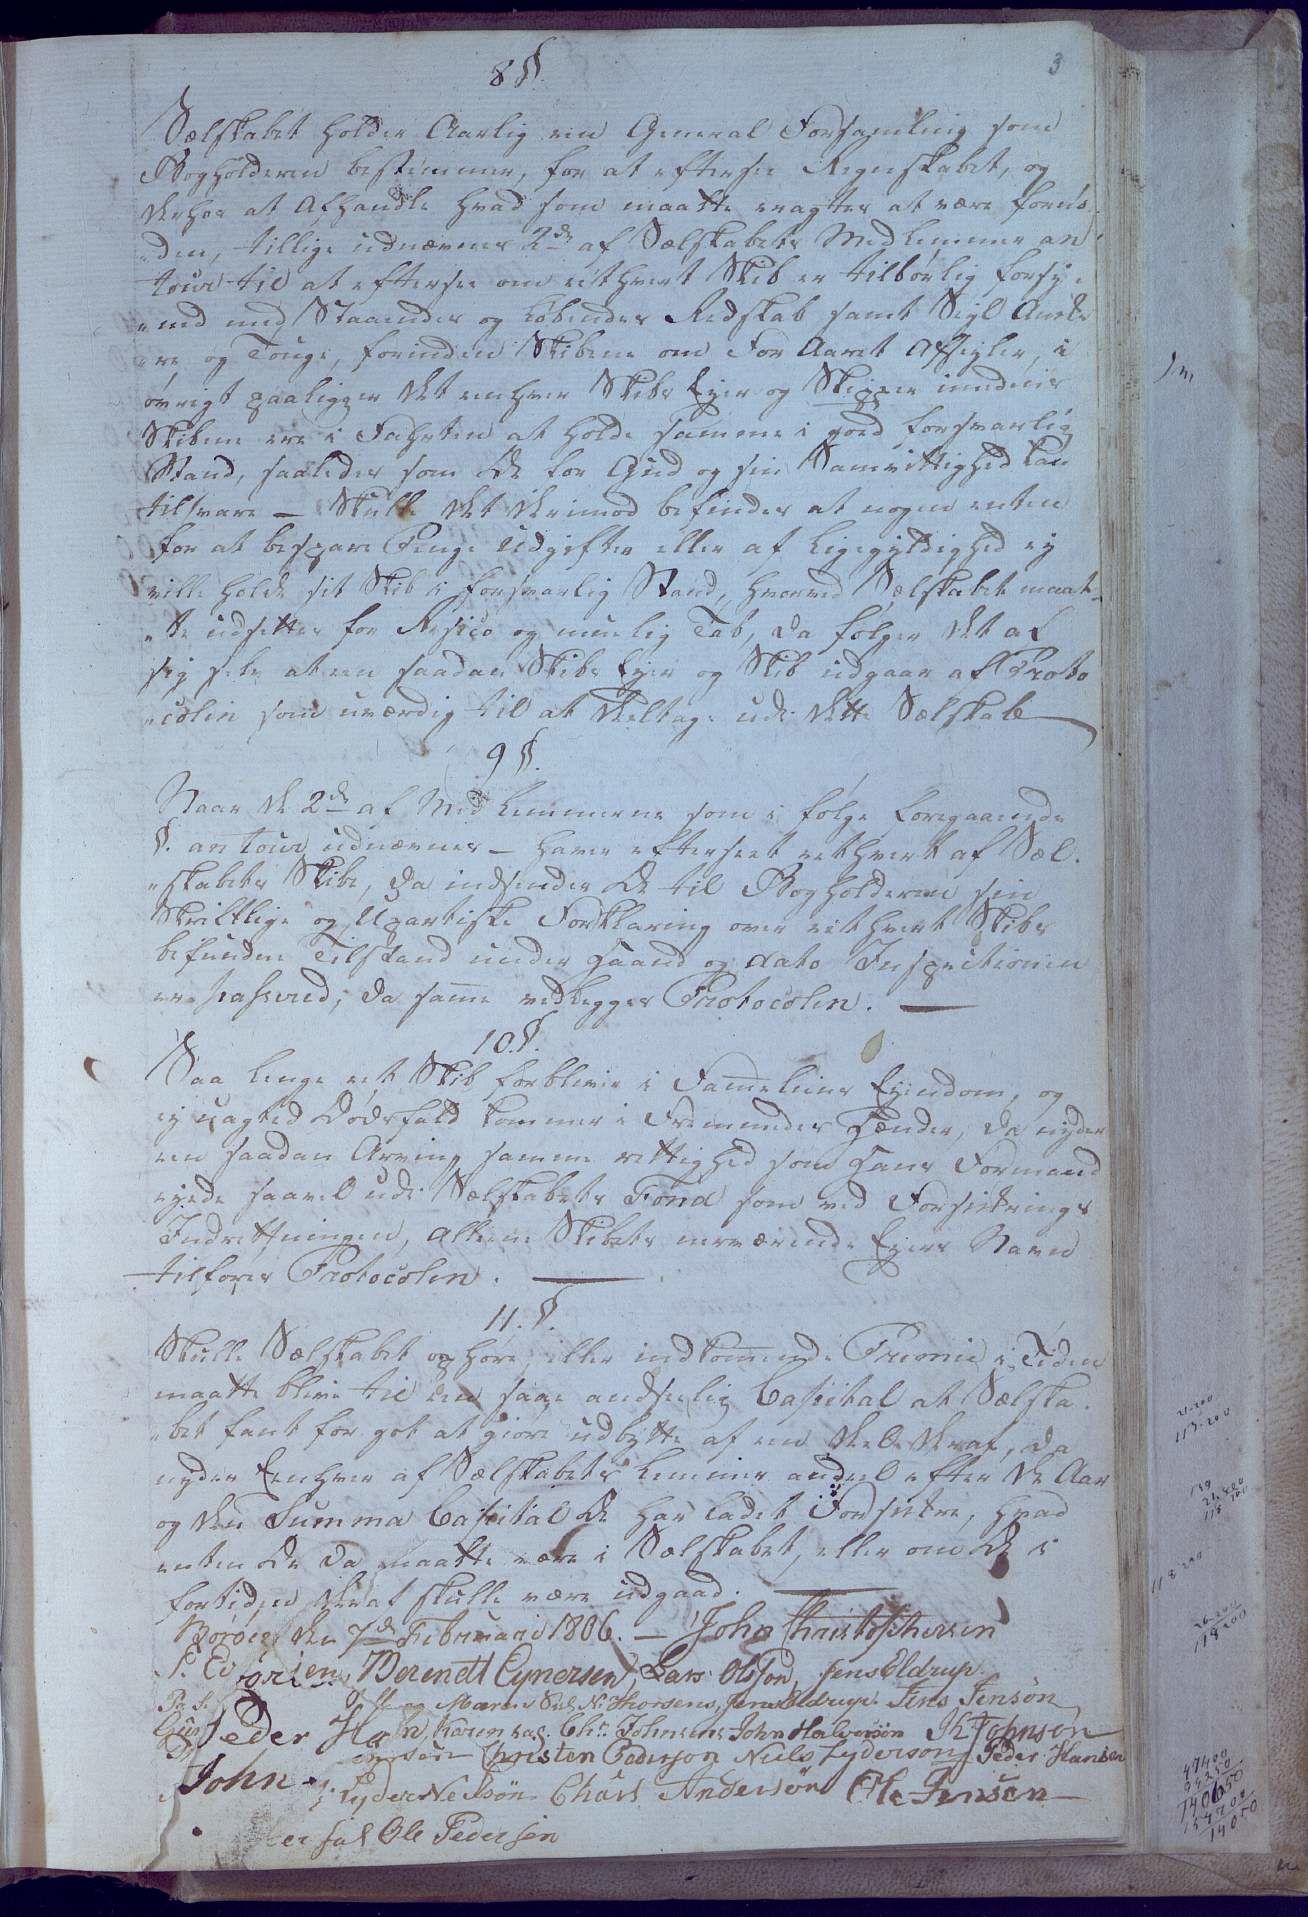 3
8 §.
Sælskabet holder Aarlig een General Forsamling som
Bogholderen bestemmer, for at efterse Regnskabet, og
derhos at Afhandle hvad som maatte eragtes at være fornö-
„den, tillige udnævnes 2de af Sælskabets Medlemmer an
tour til at eftersee om eithvert Skib er tilbörlig forsy-
„ned med Staaendes og Löbendes Redskab samt Seyl Anke-
„re og Touge, forinden Skibene om For Aaret Afseyler, i
övrigt paaligger det enhver Skibs Eyer og Skipper imedens
Skibene ere i Fahrten at holde samme i goed forsvarlig
Stand, saaledes som de for Gud og sin Samvittighed kan
tilsvare — Skulle det derimod befindes at nogen enten
for at bespare Penge Udgifter eller af Ligegyldighed ey
ville holde sit Skib i forsvarlig Stand, hvorved Sælskabet maat-
„te udsettes for Resico og muelig Tab, da fölger det af
sig selv at en saadan Skibs Eyer og Skib udgaar af Proto
„colen som uværdig til at deeltage udi dette Sælskab
9 §.
Naar de 2de af Medlemmerne som i fölge foregaaende
§. an tour udnævnes — haver efterseet eethvert af Sæl-
„skabets Skibe, da indsender de til Bogholderen sin
Skriftlige og Upartiske Forklaring over eithvert Skibs
befundne Tilstand under Haand og dato Inspectionen
er passered; da samme vedlegges Protocolen. —
10. §.
Saa lenge eet Skib forbliver i Fameliens Eyendom, og
ey uagted Dödsfald kommer i Fremmedes Hænder, da nyder
een saadan Arving samme rettighed som hans Formand
eyede saavel udi Sælskabets Fond som ved Forsikrings
Indrettningen, alleene Skibets nærværende Eyers Navn
tilföres Protocolen. —
11. §.
Skulle Sælskabet ophöre, eller indkommende Premie i Tiden
maatte blive til en saa andseelig Capital at Sælska-
„bet fant for got at giöre udbytte af en Deel deraf, da
nyder Eenhver af Sælskabets Lemmer andeel efter de Aar
og den Summa Capital de har ladet Forsikre, hvad
enten de da maatte være i Sælskabet, eller om de i
fortiden deraf skulle være udgaad. —
Boröen den 7de Februarii 1806. — John Christophersen
Berendt Eynersen, Lars Olsson, Jens Eldrup.
Maren Sal. N. Thorsens, Jens Eldrup. Jens Jensön,
Peder Hah, Karen sal. Chr. Johnsens John Halvorsön Johnson
Christen Pederson Niels Lyderson Peder Hansen
John Lyder Nelsön Chars Andersön Ole Jensen
sal Ole Pedersen